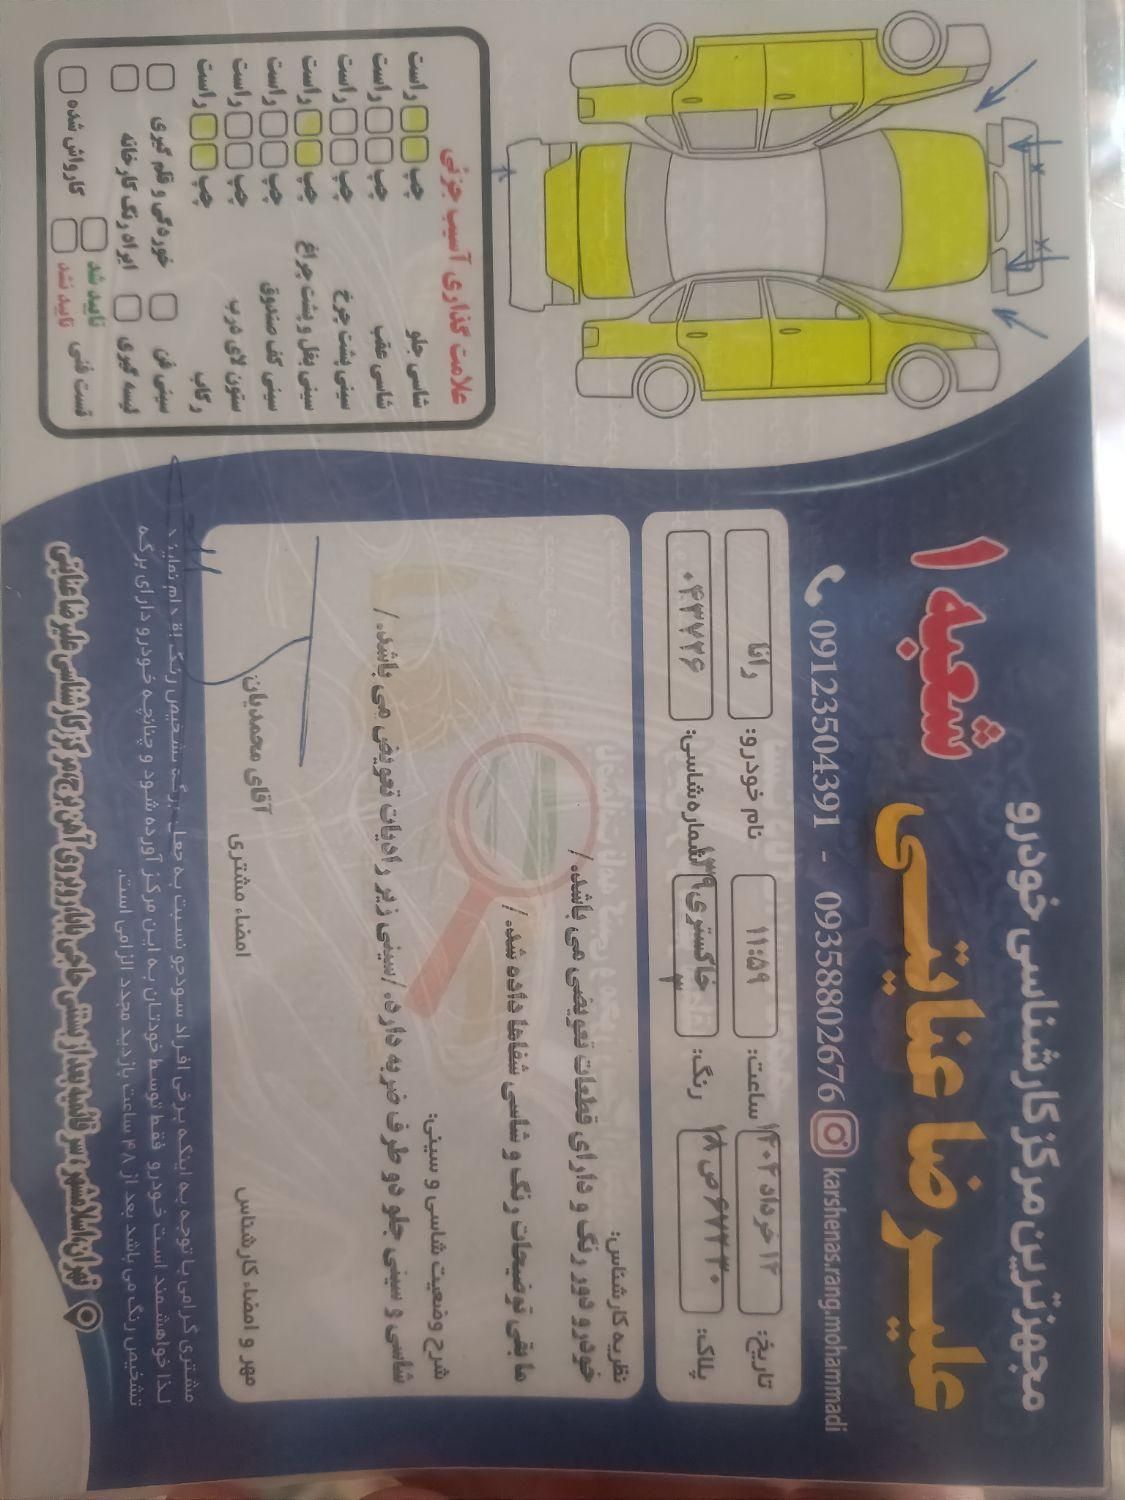 مجهزترین مرکز کارشناسی خودرو
علیرضا عنایتی
شعبه ۱
09123504391 - 09358802676 karshenas.rang.mohammadi
تاریخ: ۱۲ خرداد ۱۴۰۴ ساعت: ۱۱:۵۹ نام خودرو: رانا
پلاک: رنگ: خاکستری شماره شاسی: ۰۴۳۷۲۶
نظریه کارشناس:
خودرو دور رنگ و دارای قطعات تعویضی می باشد. /
مابقی توضیحات رنگ و شاسی شفاها داده شد. /
شرح وضعیت شاسی و سینی:
شاسی و سینی جلو دو طرف ضربه دارد. / سینی زیر رادیات تعویض می باشد. /
مهر و امضاء کارشناس امضاء مشتری آقای محمدیان
مشتری گرامی با توجه به اینکه برخی افراد سودجو نسبت به جعل برگه تشخیص رنگ اقدام نمایند
لذا خواهشمند است خودرو فقط توسط خودتان به این مرکز آورده شود و چنانچه خودرو دارای برگه
تشخیص رنگ می باشد بعد از ۴۸ ساعت بازدید مجدد الزامی است.
علامت گذاری آسیب جزئی
شاسی جلو چپ راست
شاسی عقب چپ راست
سینی پشت چرخ چپ راست
سینی بغل و پشت چراغ چپ راست
سینی کف صندوق چپ راست
ستون لای درب چپ راست
رکاب چپ راست
سینی فن خوردگی و قلم گیری
لیسه گیری ایراد رنگ کارخانه
تست فنی تایید شد تایید نشد کارواش شده